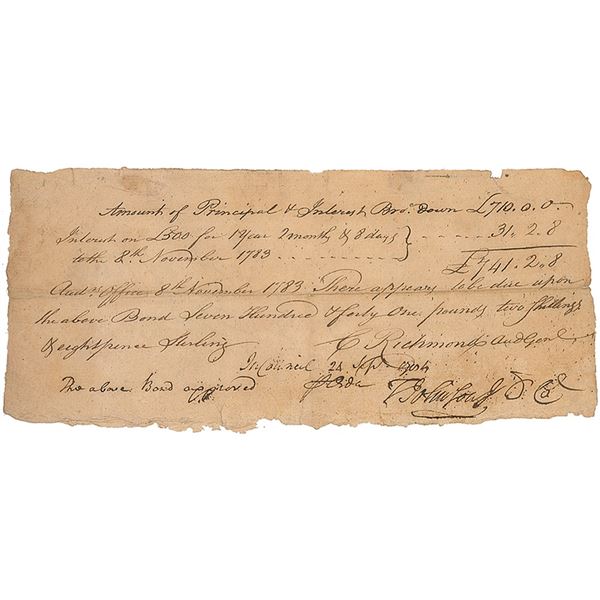 Amount of Principal & Interest Bro.t down £710. 0. 0
Interest on £500 for 1 Year 2 months & 8 days } 31. 2. 8
to the 8th November 1783
£741. 2. 8
Aud.rs Office 8th November 1783 There appears to be due upon
the above Bond Seven Hundred & forty One pounds two Shillings
& eight pence Sterling C Richmond Aud Genl
In Council 24 Sepr
The above Bond approved T Johnson J